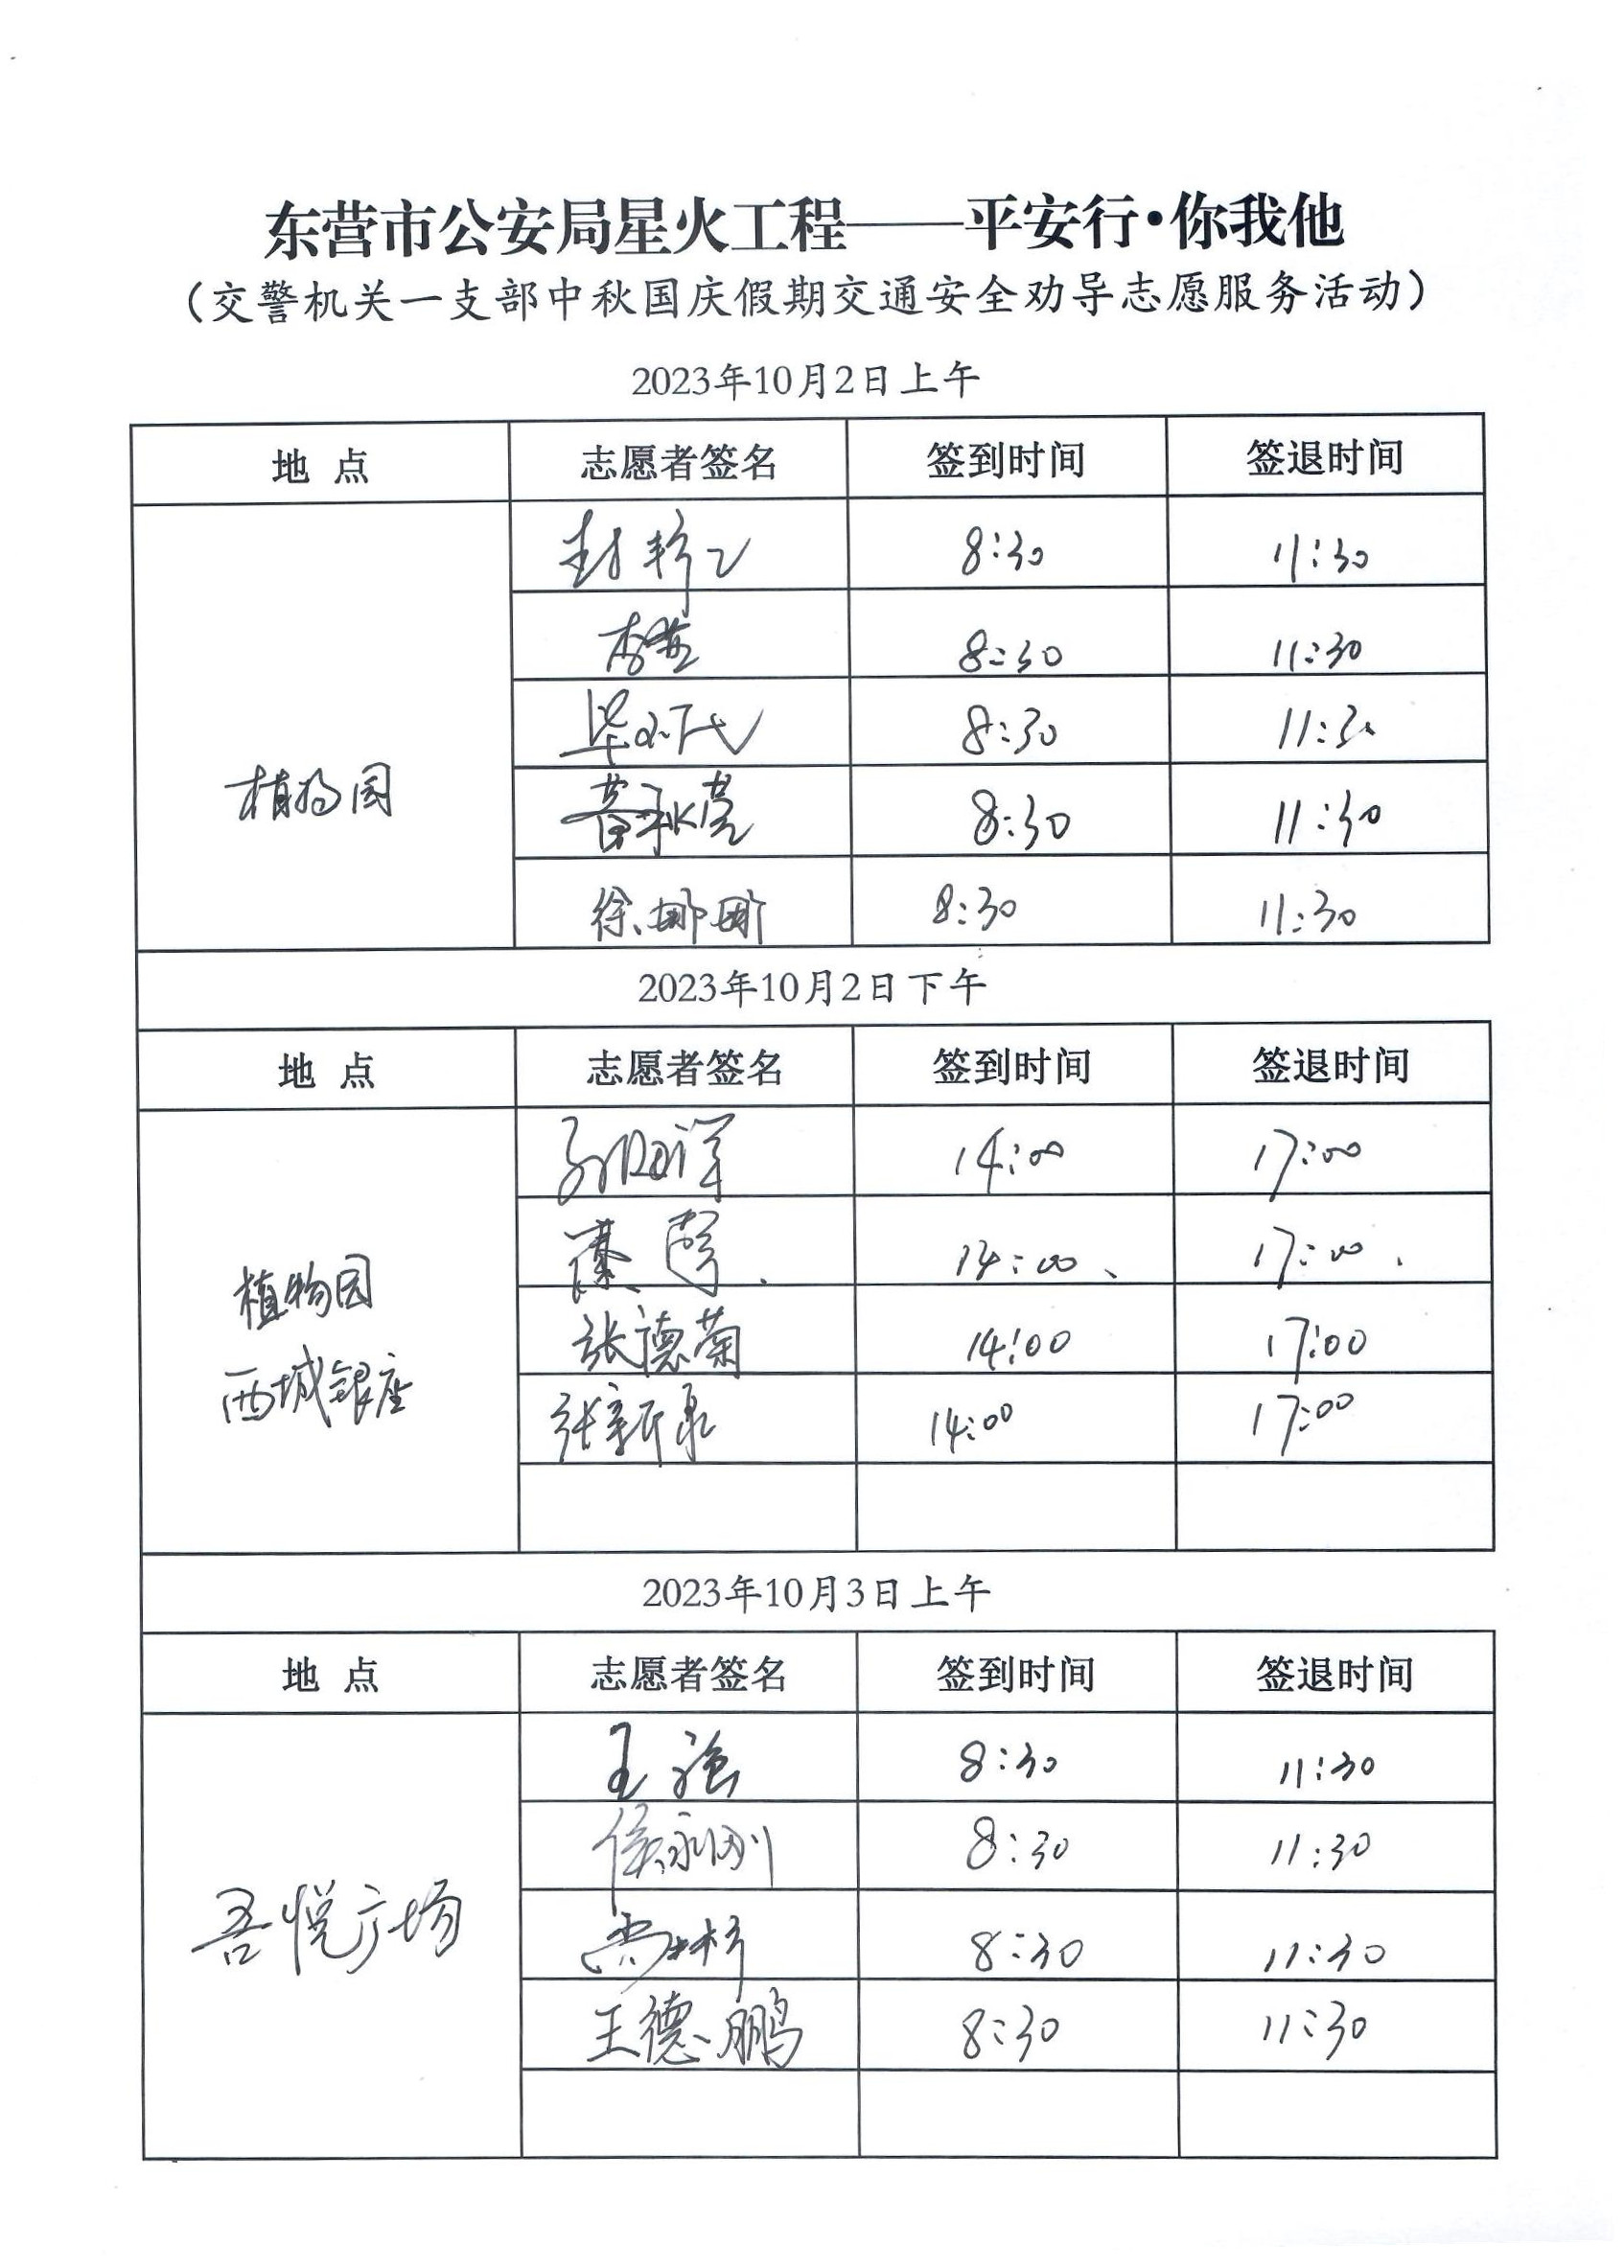 东营市公安局星火工程——平安行·你我他
（交警机关一支部中秋国庆假期交通安全劝导志愿服务活动）
2023年10月2日上午
地 点 志愿者签名 签到时间 签退时间
8:30 11:30
8:30 11:30
8:30 11:30
植物园
8:30 11:30
徐娜娜 8:30 11:30
2023年10月2日下午
地 点 志愿者签名 签到时间 签退时间
14:00 17:00
14:00 17:00
植物园
张德菊 14:00 17:00
西城银座
张新泉 14:00 17:00
2023年10月3日上午
地 点 志愿者签名 签到时间 签退时间
王强 8:30 11:30
侯永刚 8:30 11:30
吾悦广场
8:30 11:30
王德鹏 8:30 11:30